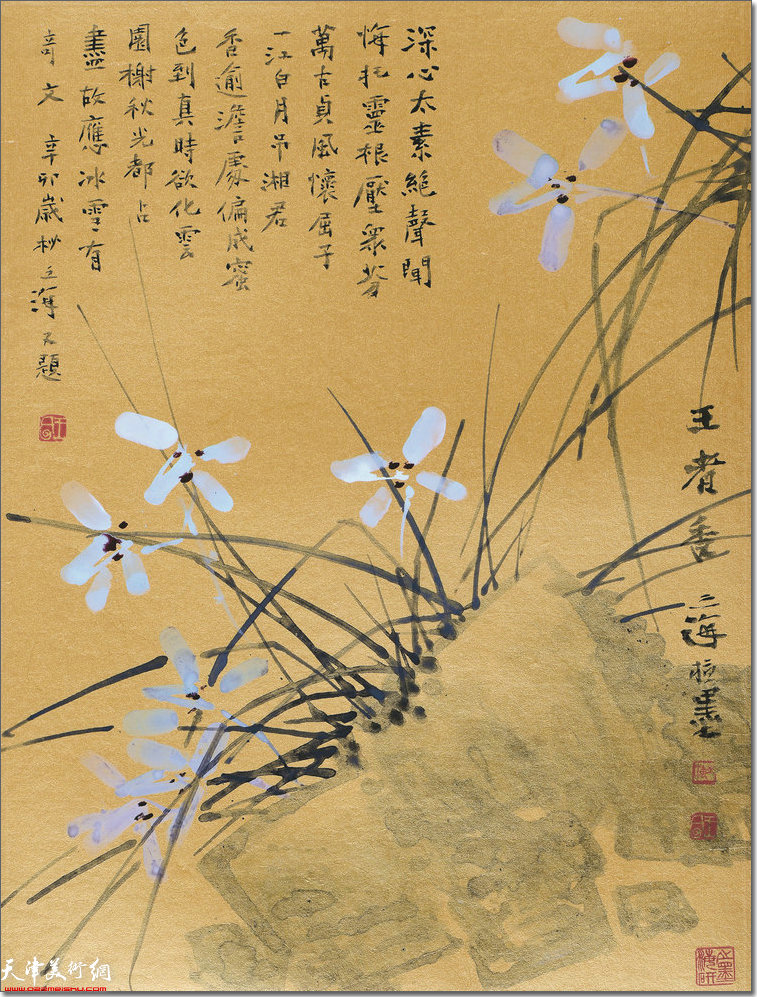 深心太素絕聲聞
悔托靈根壓衆芬
萬古貞風懷屈子
一江白月吊湘君
香逾澹處偏成蜜
色到真時欲化雲
園榭秋光都占
盡故應冰雪有
奇文 辛卯歲秋之海又題
王者香 之海極墨
天津美術網
www.022meishu.com